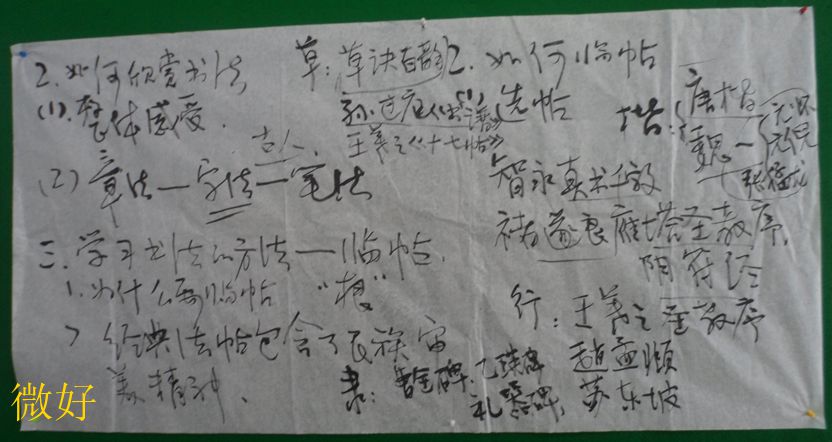 2. 如何欣赏书法
(1). 整体感受.
古人
(2) 章法—字法—笔法
三. 学习书法的方法—临帖.
1. 为什么要临帖 "根"
经典法帖包含了民族审
美精神.
草: 草诀百韵
孙过庭《书谱》
王羲之《十七帖》
2. 如何临帖
(1) 选帖
楷: 唐楷
魏—
元怀
元倪
张猛龙
智永真书千文
褚遂良雁塔圣教序,
阴符经
行: 王羲之圣教序
赵孟頫
苏东坡
隶: 曹全碑, 乙瑛碑
礼器碑,
微好